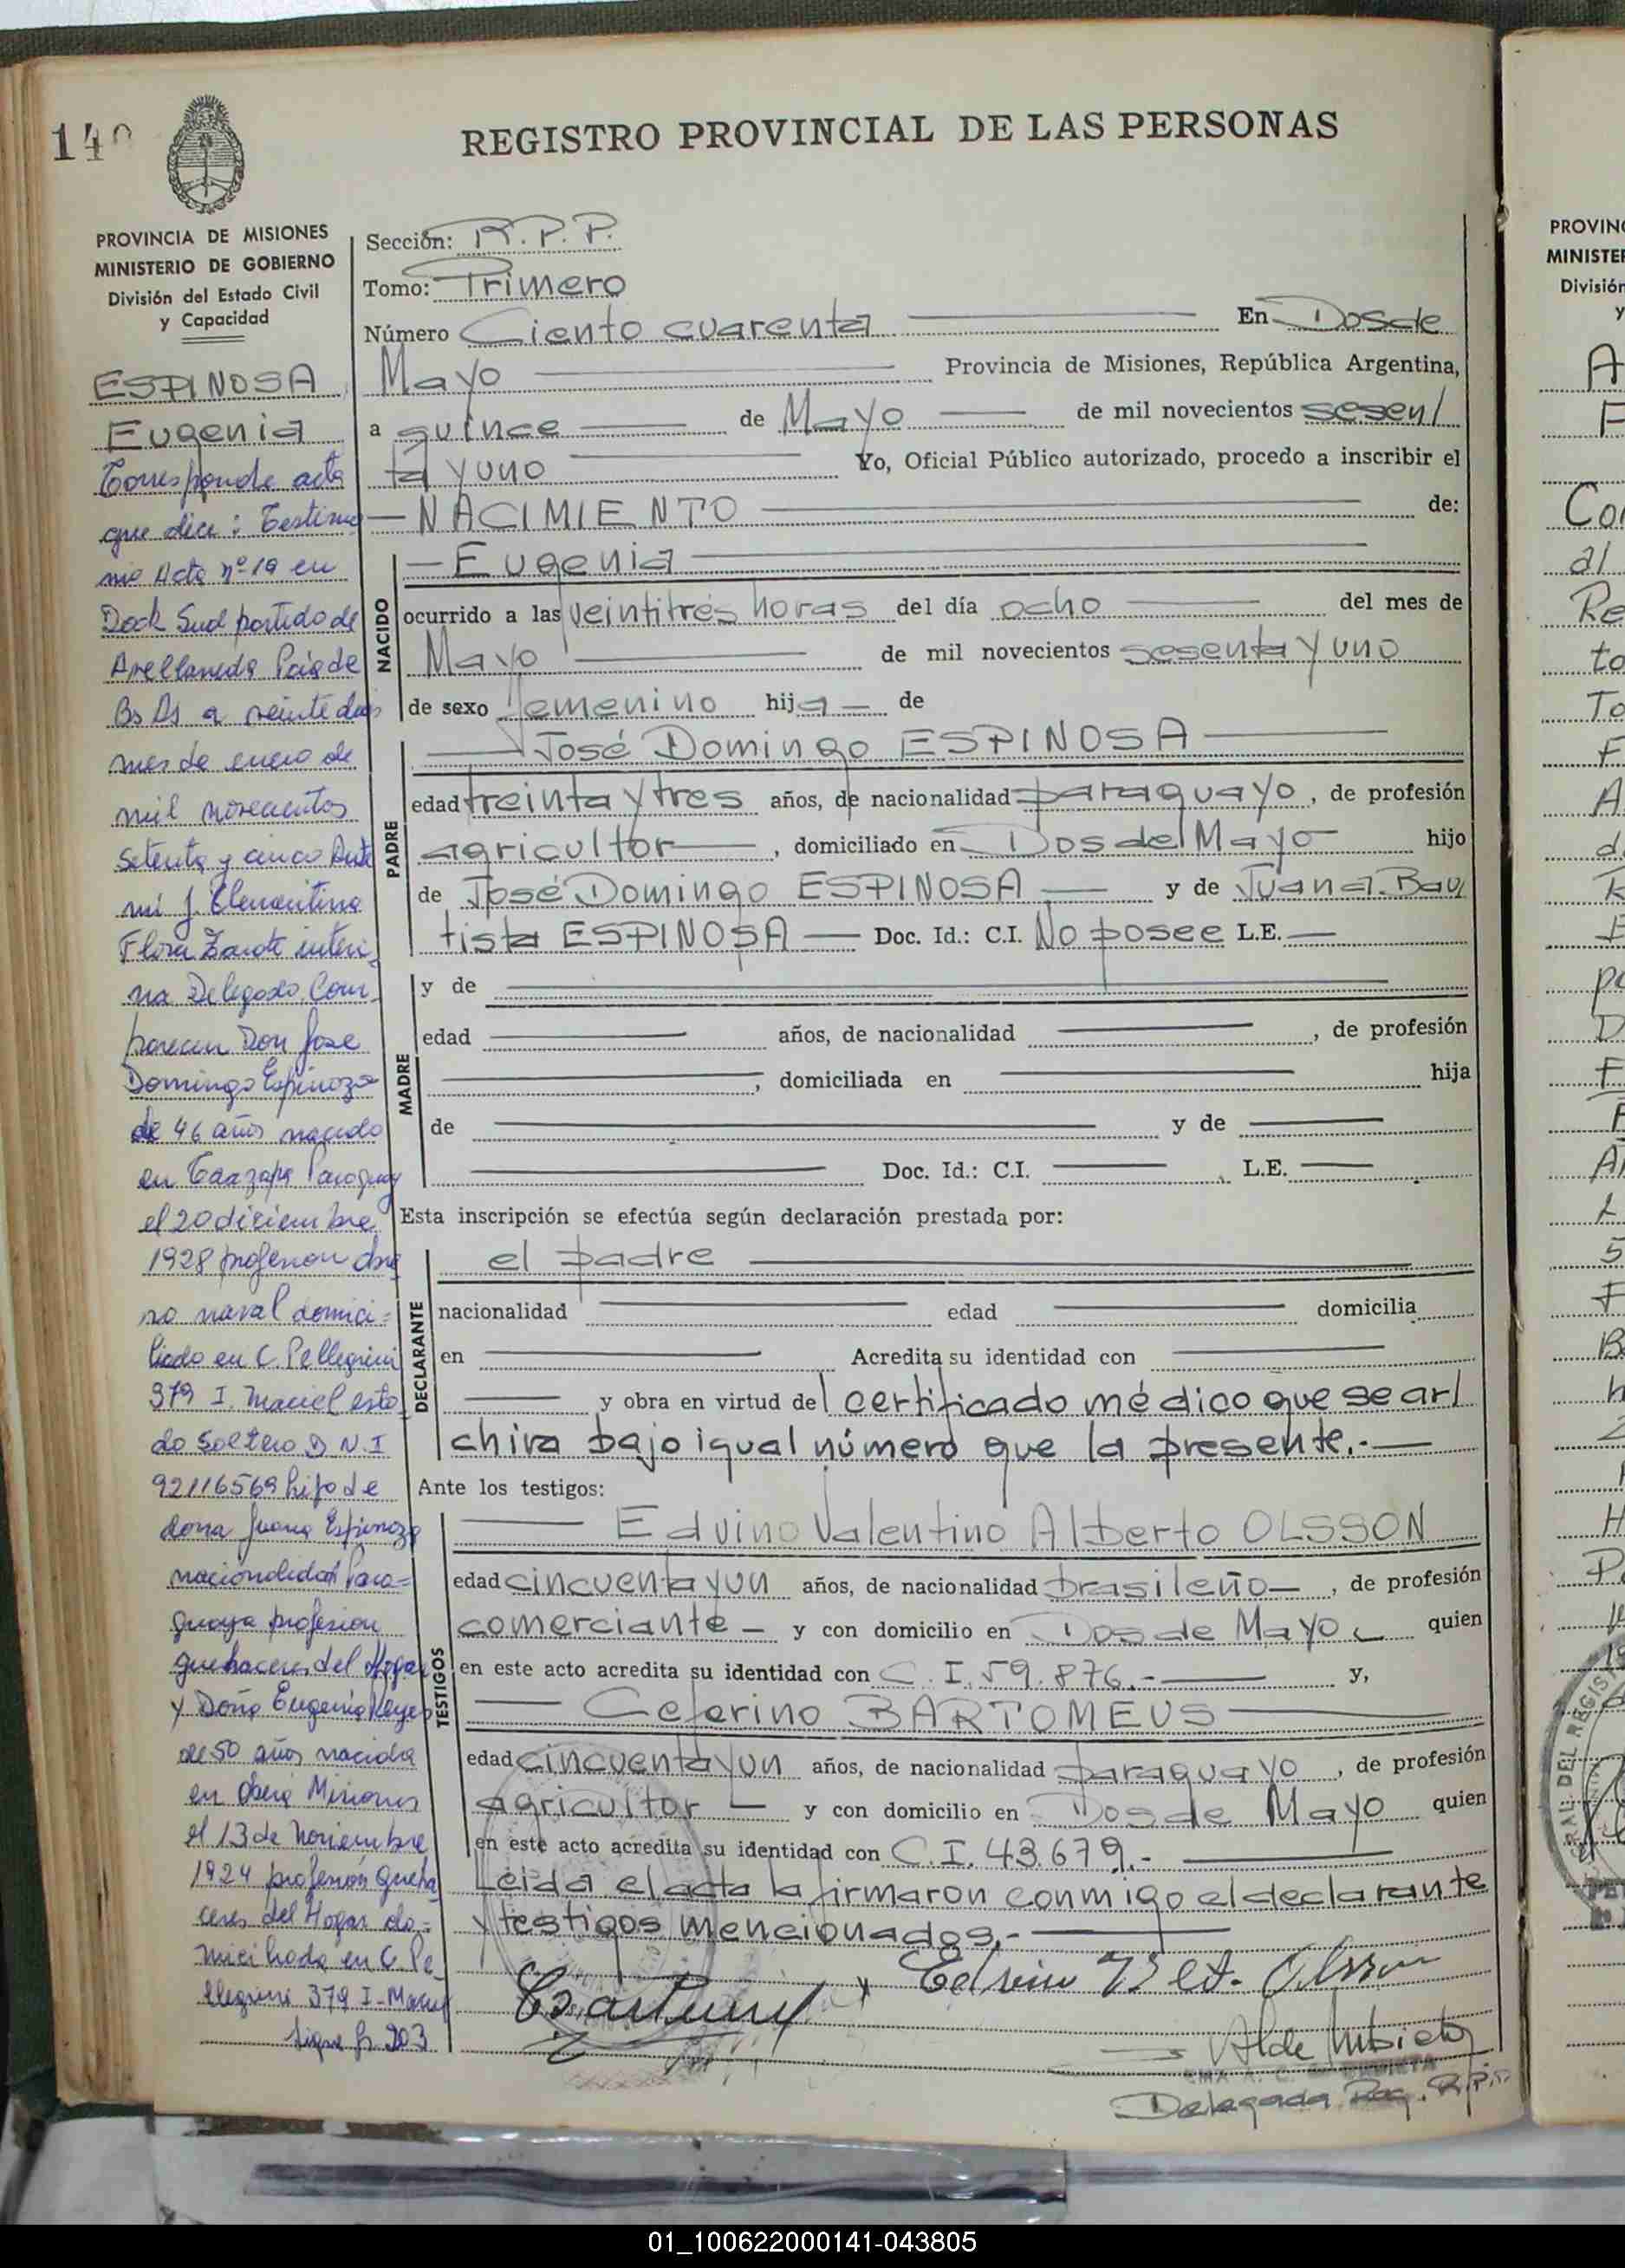 140
REGISTRO PROVINCIAL DE LAS PERSONAS
PROVINCIA DE MISIONES
MINISTERIO DE GOBIERNO
División del Estado Civil
y Capacidad
ESPINOSA
Eugenia
Corresponde acta
que dice: Testimo
nio Acta nº 19 en
Dock Sud partido de
Avellaneda Pcia de
Bs As a veinte dias
mes de enero de
mil novecientos
setenta y cinco Ante
mi J. Clementina
Flora Zarate interi
na Delegado. Com-
parecen Don Jose
Domingo Espinoza
de 46 años nacido
en Caazapa Paraguay
el 20 diciembre
1928 profesion obre
ro naval domici=
liado en C. Pellegrini
379 I. Maciel esta
do soltero D N. I
92116569 hijo de
dona Juana Espinoza
nacionalidad Para=
guaya profesion
quehaceres del Hogar
y Doña Eugenia Reyes
de 50 años nacida
en Oberá Misiones
el 13 de Noviembre
1924 profesión queha
ceres del Hogar do=
miciliada en C. Pe-
llegrini 379 I- Maciel
sigue fs 203
Sección: R.P.P.
Tomo: Primero
Número Ciento cuarenta En Dos de
Mayo Provincia de Misiones, República Argentina,
a quince de Mayo de mil novecientos sesen/
ta y uno Yo, Oficial Público autorizado, procedo a inscribir el
NACIMIENTO de:
NACIDO
Eugenia
ocurrido a las veintitrés horas del día ocho del mes de
Mayo de mil novecientos sesenta y uno
de sexo femenino hija de
PADRE
José Domingo ESPINOSA
edad treinta y tres años, de nacionalidad paraguayo, de profesión
agricultor, domiciliado en Dos de Mayo hijo
de José Domingo ESPINOSA y de Juana Bau/
tista ESPINOSA Doc. Id.: C.I. No posee L.E.
MADRE
y de
edad años, de nacionalidad , de profesión
, domiciliada en hija
de y de
Doc. Id.: C.I. L.E.
Esta inscripción se efectúa según declaración prestada por:
DECLARANTE
el padre
nacionalidad edad domicilia
en Acredita su identidad con
y obra en virtud del certificado médico que se ar/
chiva bajo igual número que la presente.-
Ante los testigos:
TESTIGOS
Edvino Valentino Alberto OLSSON
edad cincuenta y un años, de nacionalidad brasileño, de profesión
comerciante y con domicilio en Dos de Mayo quien
en este acto acredita su identidad con C.I. 59.876.- y,
Ceferino BARTOMEUS
edad cincuenta y un años, de nacionalidad paraguayo, de profesión
agricultor y con domicilio en Dos de Mayo quien
en este acto acredita su identidad con C.I. 43.679.-
Leída el acta la firmaron conmigo el declarante
y testigos mencionados.-
Olsson
Delegada R.P.P.
PROVIN
MINISTE
División
y
01_100622000141-043805